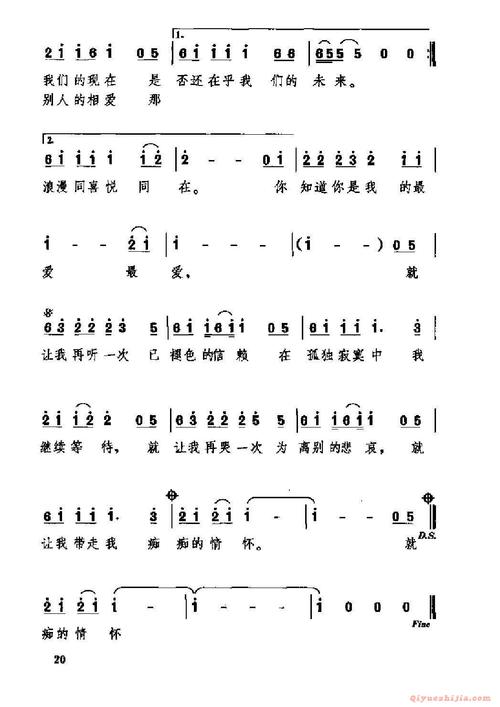 1.
2 i i 6 i 0 5 | 6 i i i i i 6 6 | 6 5 5 5 0 0 :||
我们的现在 是 否还在乎我 们的 未来。
别人的相爱 那
2.
6 i i i i i 2 | 2 - - 0 i | 2 2 2 3 2 i i i
浪漫同喜悦 同 在。 你 知道你是我 的最
i - - 2 i | i - - - | (i - -) 0 5
爱 最 爱, 就
6 3 2 2 2 2 3 5 | 6 i i i 6 i i 0 5 | 3 5 i i i i. 3
让我再听一次 已 褪色的信赖 在 孤独寂寞中 我
2 i i 2 2 0 5 | 6 3 2 2 2 2 3 5 | 6 i i i 6 i i 0 5
继续等待, 就 让我再哭一次 为 离别的悲哀, 就
6 i i i i. 3 | 2 i 2 i i - | i - - 0 5
让我带走我 痴 痴的情 怀。 就
D.S.
2 i 2 i i - - | i - - - | i 0 0 0
Fine
痴的情 怀
20
Qiyueshijia.com